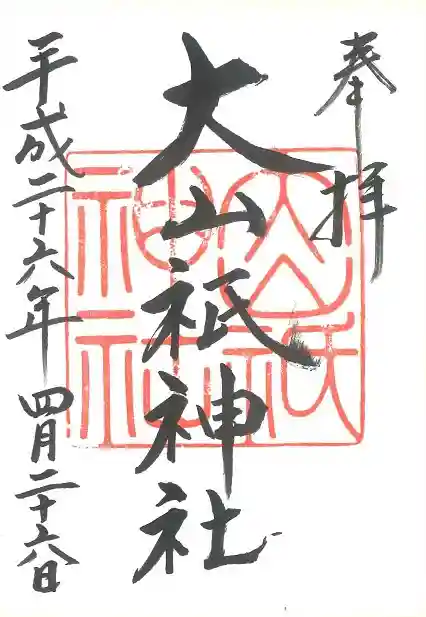 奉拝
大山祇神社
大山祇神社
平成二十六年 四月二十六日